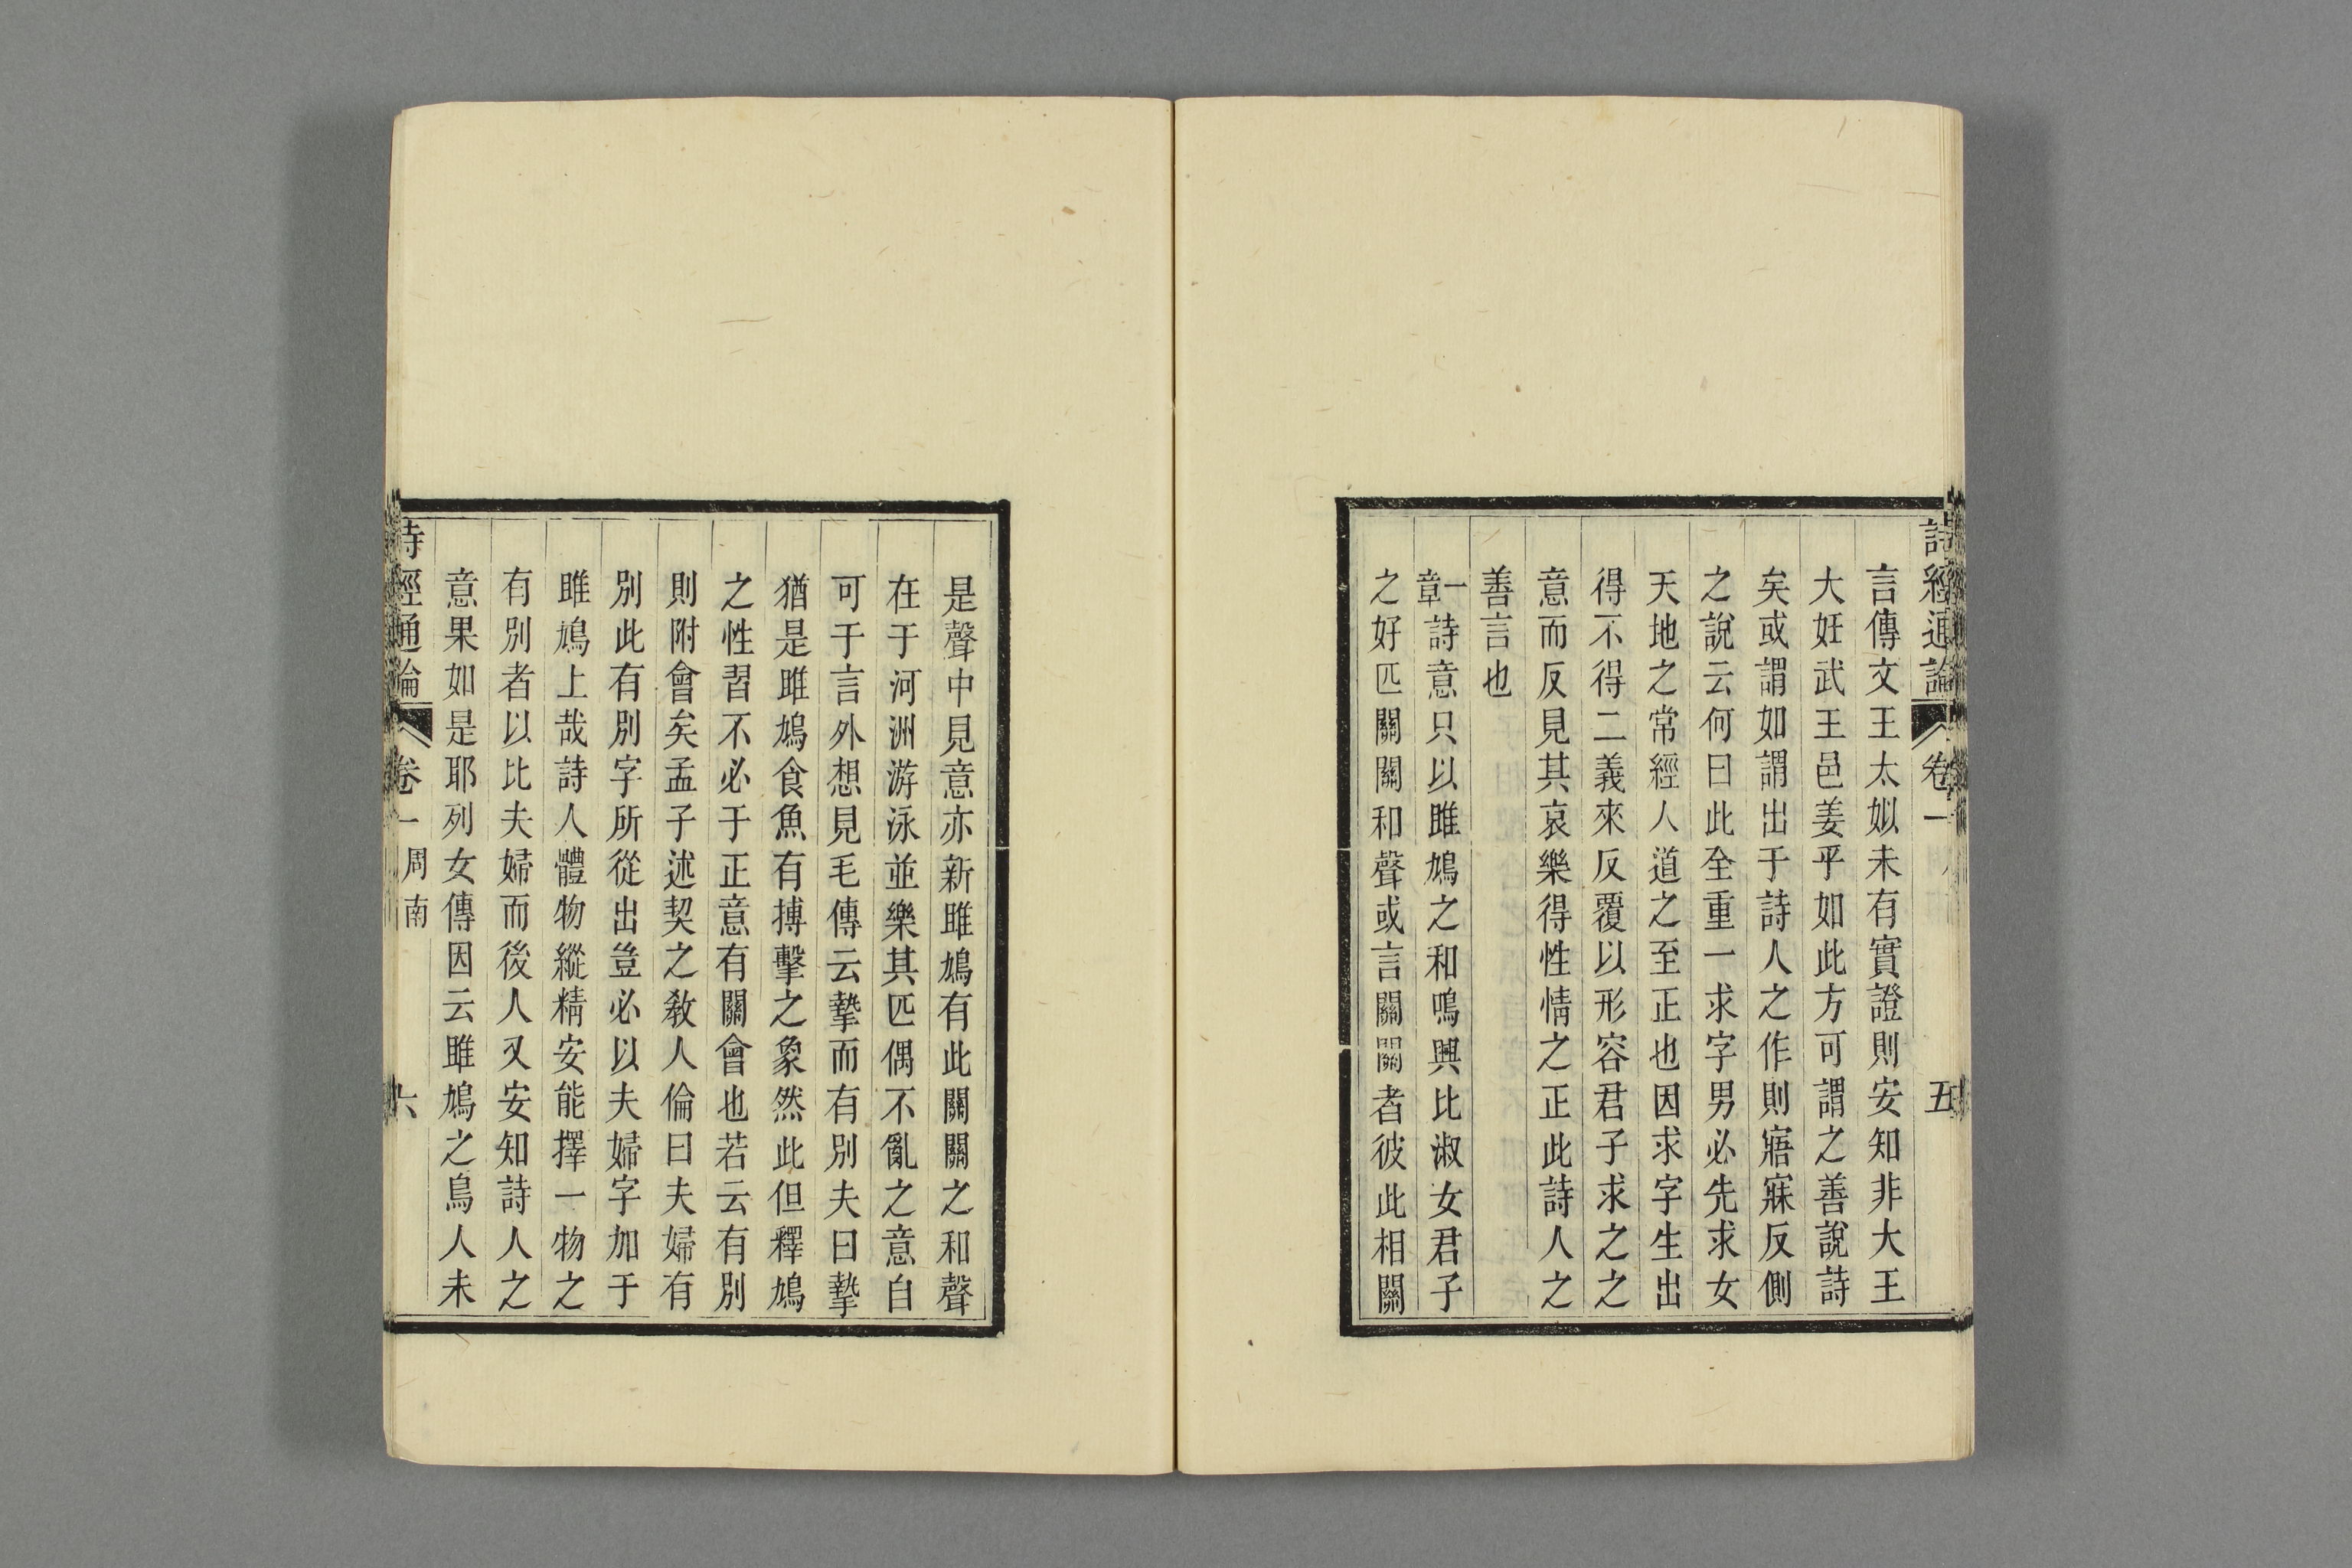 詩經通論 卷一 五
言傳文王太姒未有實證則安知非大王
大妊武王邑姜乎如此方可謂之善說詩
矣或謂如謂出于詩人之作則寤寐反側
之說云何曰此全重一求字男必先求女
天地之常經人道之至正也因求字生出
得不得二義來反覆以形容君子求之之
意而反見其哀樂得性情之正此詩人之
善言也
一章詩意只以雎鳩之和鳴興比淑女君子
之好匹關關和聲或言關關者彼此相關
是聲中見意亦新雎鳩有此關關之和聲
在于河洲游泳並樂其匹偶不亂之意自
可于言外想見毛傳云摯而有別夫曰摯
猶是雎鳩食魚有搏擊之象然此但釋鳩
之性習不必于正意有關會也若云有別
則附會矣孟子述契之敎人倫曰夫婦有
別此有別字所從出豈必以夫婦字加于
雎鳩上哉詩人體物縱精安能擇一物之
有別者以比夫婦而後人又安知詩人之
意果如是耶列女傳因云雎鳩之鳥人未
詩經通論 卷一 周南 六